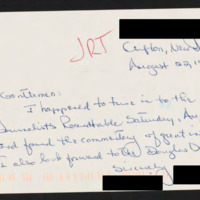 JRT
Clifton, New J
August 22, 19
Gentlemen:
I happened to tune in to the
Journalists Roundtable Saturday, Au
and found the commentary of great in
I also look forward to the Douglas D
Sincerely